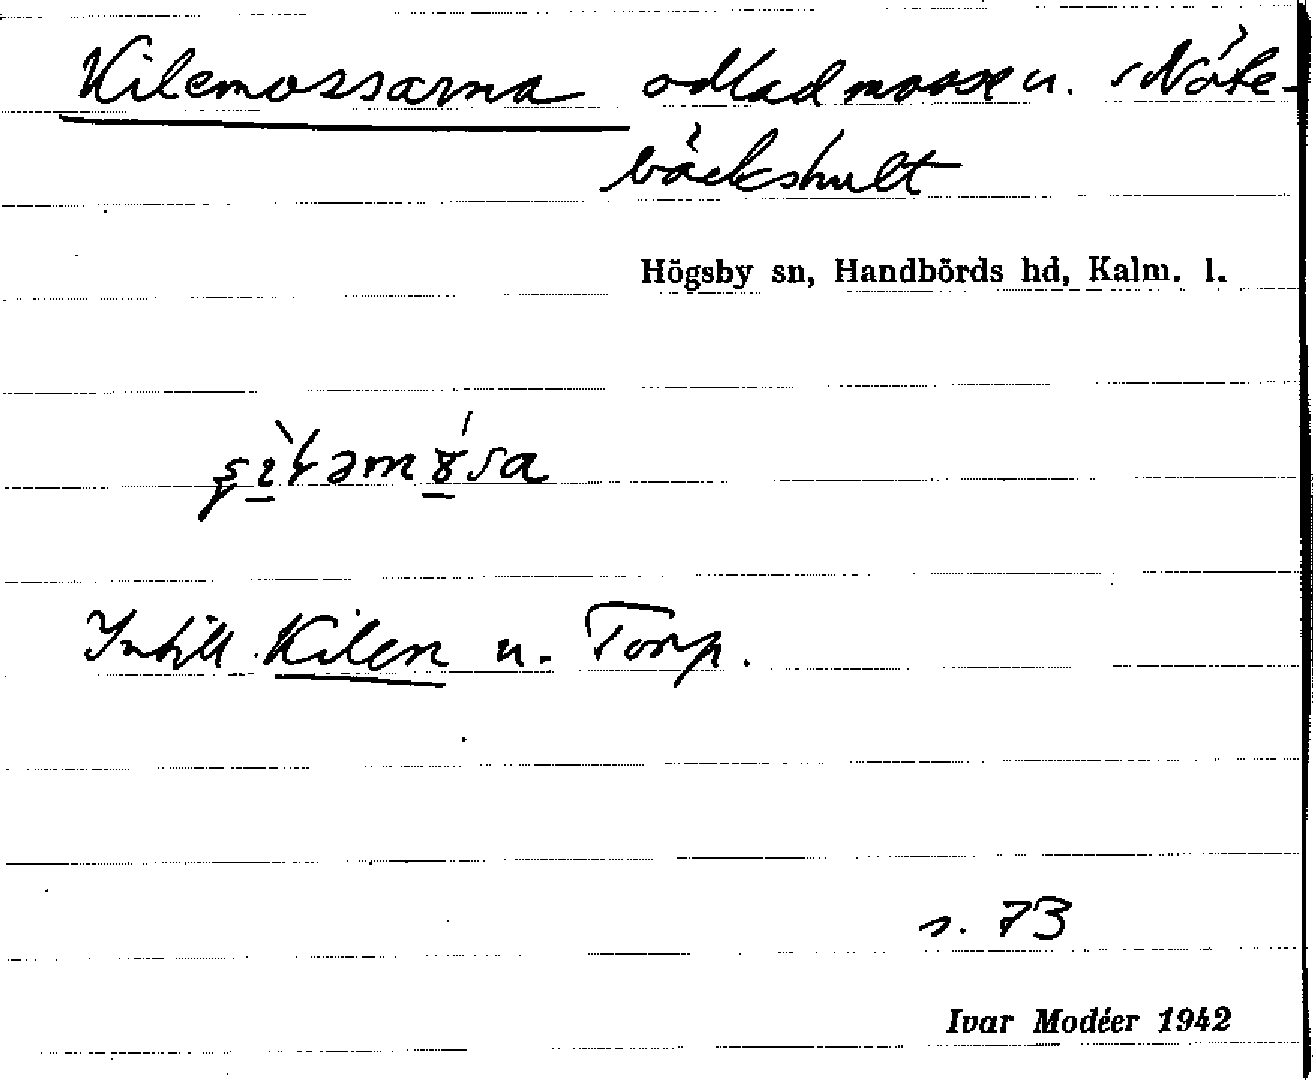 Kilemossarna odlad mosse u. Nöte-
bäckshult
Högsby sn, Handbörds hd, Kalm. l.
Intill Kilen u. Torp.
s. 73
Ivar Modéer 1942